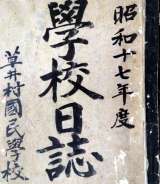 昭和十七年度
學校日誌
草井村國民學校